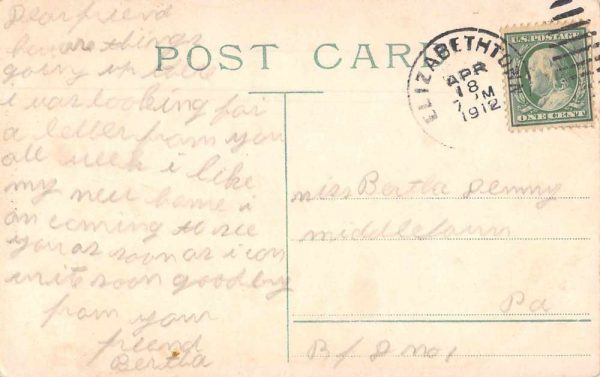 Dear friend
how are things
going up there
i was looking for
a letter from you
all week i like
my new home i
am coming to see
you as soon as i can
write soon good by
from your
friend
Bertha
POST CARD
ELIZABETHTOWN
APR
18
7 M
1912
U.S. POSTAGE
ONE CENT
miss Bertha Demmy
middletown
Pa
R f d no 1